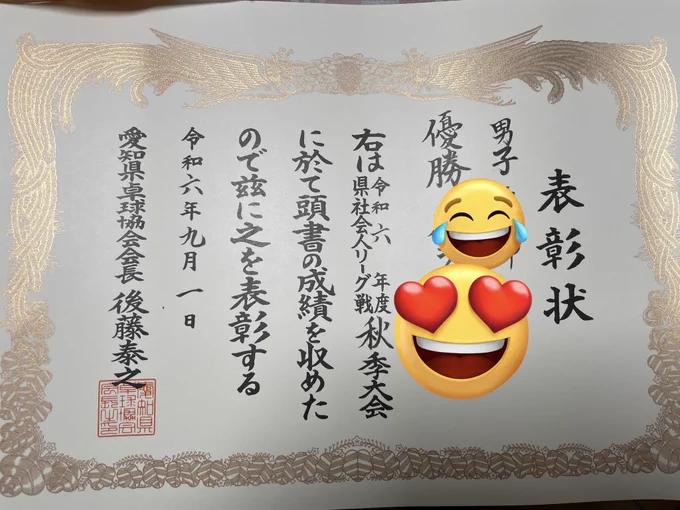 表彰状
男子
優勝
右は令和六年度県社会人リーグ戦秋季大会
に於て頭書の成績を収めた
ので茲に之を表彰する
令和六年九月一日
愛知県卓球協会会長 後藤泰之